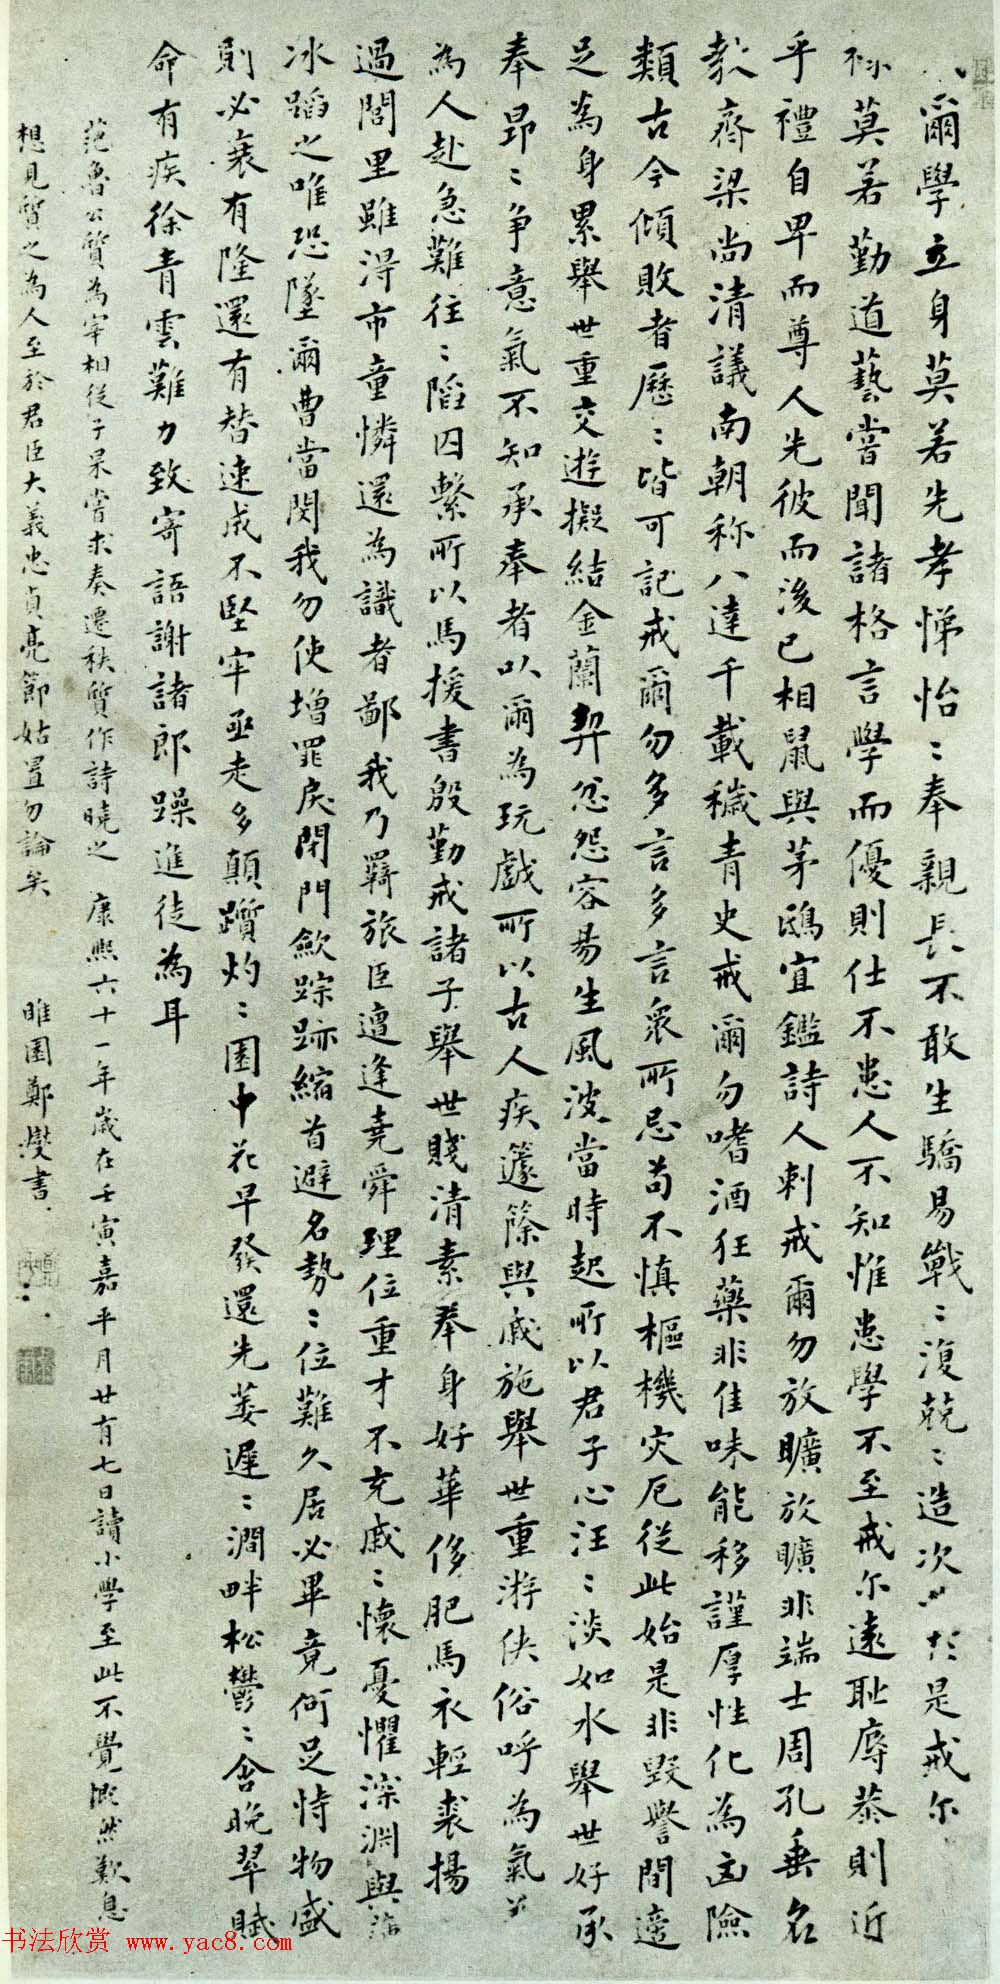 爾學立身莫若先孝悌怡〻奉親長不敢生驕易戰〻復兢〻造次於是戒尔
學干祿莫若勤道藝嘗聞諸格言學而優則仕不患人不知惟患學不至戒尔遠恥辱恭則近
乎禮自卑而尊人先彼而後己相鼠與茅鴟宜鑑詩人刺戒爾勿放曠放曠非端士周孔垂名
教齊梁尚清議南朝称八達千載穢青史戒爾勿嗜酒狂藥非佳味能移謹厚性化為凶險
類古今傾敗者歷〻皆可記戒爾勿多言多言衆所忌苟不慎樞機灾厄從此始是非毀譽間適
足為身累舉世重交遊擬結金蘭契忿怨容易生風波當時起所以君子心汪〻淡如水舉世好承
奉昂〻爭意氣不知承奉者以爾為玩戲所以古人疾籧篨與戚施舉世重游俠俗呼為氣
為人赴急難往〻陷囚繫所以馬援書殷勤戒諸子舉世賤清素奉身好華侈肥馬衣輕裘揚
過閭里雖得市童憐還為識者鄙我乃羇旅臣遭逢堯舜理位重才不充戚〻懷憂懼深淵與
冰蹈之唯恐墜爾曹當閔我勿使增罪戾閉門歛踪跡縮首避名勢〻位難久居必畢竟何足恃物盛
則必衰有隆還有替速成不堅牢亟走多顛躓灼〻園中花早發還先萎遲〻澗畔松鬱〻含晚翠賦
命有疾徐青雲難力致寄語謝諸郎躁進徒為耳
范魯公質為宰相從子杲嘗求奏遷秩質作詩曉之 康熙六十一年歲在壬寅嘉平月廿有七日讀小學至此不覺慨然歎息
想見質之為人至於君臣大義忠貞亮節姑置勿論矣 睢園鄭燮書
书法欣赏 www.yac8.com